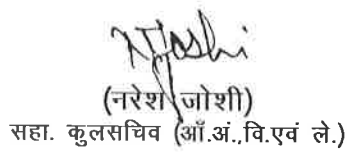 NJoshi
(नरेश जोशी)
सहा. कुलसचिव (ऑ.अं.,वि.एवं ले.)